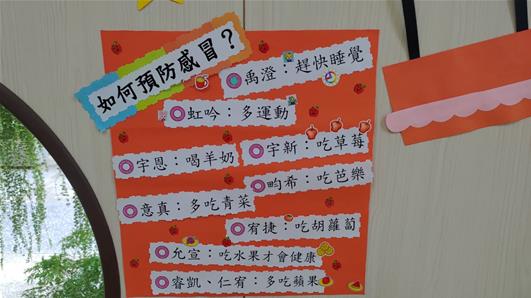 如何預防感冒？
禹澄：趕快睡覺
虹吟：多運動
宇恩：喝羊奶
宇新：吃草莓
畇希：吃芭樂
意真：多吃青菜
宥捷：吃胡蘿蔔
允宣：吃水果才會健康
睿凱、仁宥：多吃蘋果